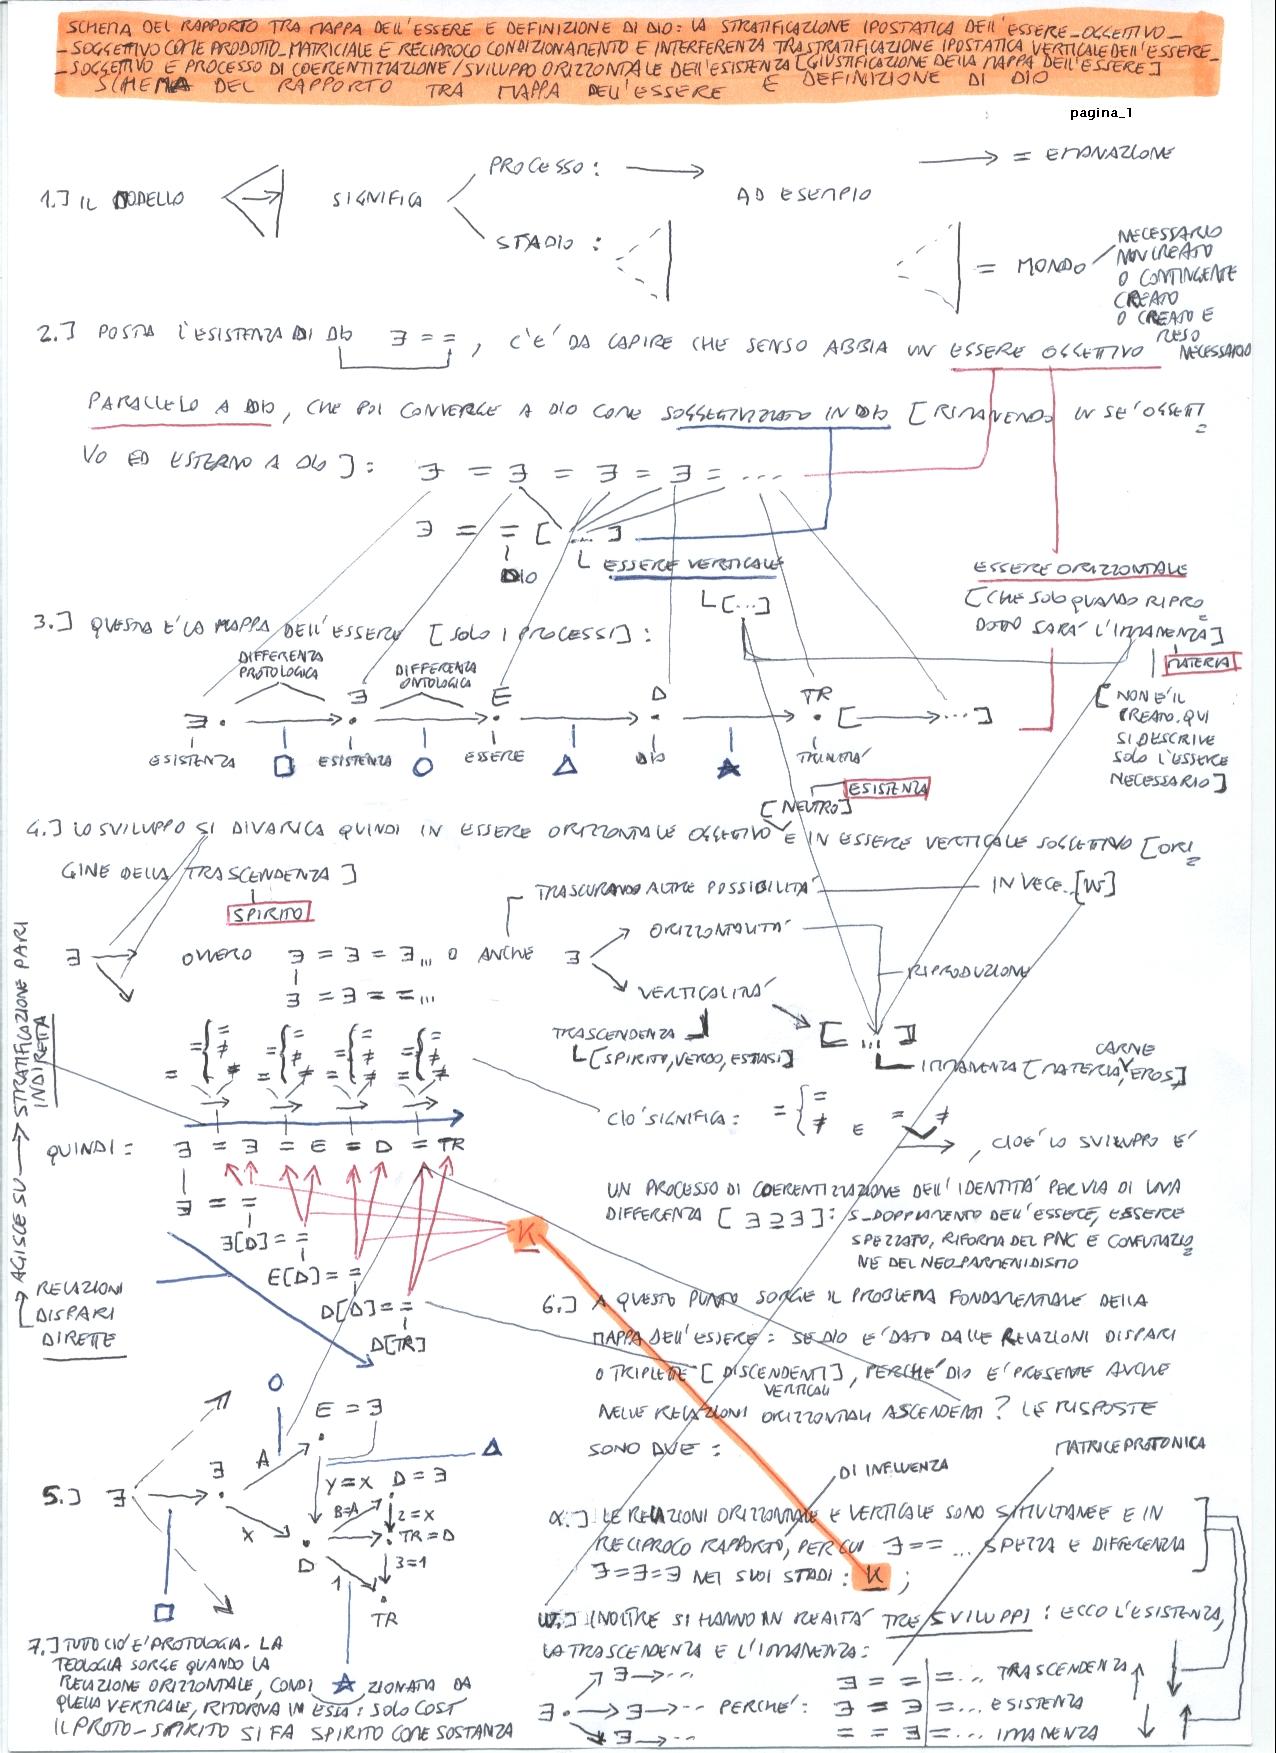 SCHEMA DEL RAPPORTO TRA MAPPA DELL'ESSERE E DEFINIZIONE DI DIO: LA STRATIFICAZIONE IPOSTATICA DELL'ESSERE_OGGETTIVO_
_SOGGETTIVO COME PRODOTTO_MATRICIALE E RECIPROCO CONDIZIONAMENTO E INTERFERENZA TRA STRATIFICAZIONE IPOSTATICA VERTICALE DELL'ESSERE_
_SOGGETTIVO E PROCESSO DI COERENTIZZAZIONE/SVILUPPO ORIZZONTALE DELL'ESISTENZA [GIUSTIFICAZIONE DELLA MAPPA DELL'ESSERE]
SCHEMA DEL RAPPORTO TRA MAPPA DELL'ESSERE E DEFINIZIONE DI DIO
pagina_1
1.] IL MODELLO SIGNIFICA
PROCESSO:
STADIO:
AD ESEMPIO
= EMANAZIONE
= MONDO
NECESSARIO
NON CREATO
O CONTINGENTE
CREATO
O CREATO E
RESO
NECESSARIO
2.] POSTA L'ESISTENZA DI DIO ∃ = =, C'E' DA CAPIRE CHE SENSO ABBIA UN ESSERE OGGETTIVO
PARALLELO A DIO, CHE POI CONVERGE A DIO COME SOGGETTIVIZZATO IN DIO [RIMANENDO IN SE' OGGETTI=
VO ED ESTERNO A DIO]: ∃ = ∃ = ∃ = ∃ = ...
∃ = = [...]
DIO
ESSERE VERTICALE
[...]
ESSERE ORIZZONTALE
[CHE SOLO QUANDO RIPRO=
DOTTO SARA' L'IMMANENZA]
MATERIA
[NON E' IL
CREATO. QUI
SI DESCRIVE
SOLO L'ESSERE
NECESSARIO]
3.] QUESTA E' LA MAPPA DELL'ESSERE [SOLO I PROCESSI]:
DIFFERENZA
PROTOLOGICA
DIFFERENZA
ONTOLOGICA
∃ ∃ E D TR [ ... ]
ESISTENZA ESISTENZA ESSERE DIO TRINITA'
[NEUTRO]
ESISTENZA
4.] LO SVILUPPO SI DIVARICA QUINDI IN ESSERE ORIZZONTALE OGGETTIVO E IN ESSERE VERTICALE SOGGETTIVO [ORI=
GINE DELLA TRASCENDENZA]
SPIRITO
TRASCURANDO ALTRE POSSIBILITA' INVECE [W]
∃ OVVERO ∃ = ∃ = ∃... O ANCHE ∃
∃ = ∃ = =...
ORIZZONTALITA'
RIPRODUZIONE
VERTICALITA'
TRASCENDENZA
[SPIRITO, VERBO, ESTASI]
[...]
IMMANENZA [MATERIA, CARNE, EROS]
AGISCE SU STRATIFICAZIONE PARI
INDIRETTA
CIO' SIGNIFICA: = { = ≠ E = ≠, CIOE' LO SVILUPPO E'
QUINDI: ∃ = ∃ = E = D = TR
∃ = =
∃[D] = =
E[D] = =
D[D] = =
D[TR]
UN PROCESSO DI COERENTIZZAZIONE DELL'IDENTITA' PER VIA DI UNA
DIFFERENZA [∃ ⊇ ∃]: S_DOPPIAMENTO DELL'ESSERE, ESSERE
SPEZZATO, RIFORMA DEL PNC E CONFUTAZIO=
NE DEL NEO_PARMENIDISMO
K
RELAZIONI
DISPARI
DIRETTE
6.] A QUESTO PUNTO SORGE IL PROBLEMA FONDAMENTALE DELLA
MAPPA DELL'ESSERE: SE DIO E' DATO DALLE RELAZIONI DISPARI
O TRIPLETTE [DISCENDENTI], PERCHE' DIO E' PRESENTE ANCHE
VERTICALI
NELLE RELAZIONI ORIZZONTALI ASCENDENTI? LE RISPOSTE
SONO DUE:
5.] ∃
∃ A E = ∃
Y=X D = ∃
X B=A 2=X
D TR = D
1 3=1
TR
DI INFLUENZA
MATRICE PROTONICA
α.] LE RELAZIONI ORIZZONTALE E VERTICALE SONO SIMULTANEE E IN
RECIPROCO RAPPORTO, PER CUI ∃ = = ... SPEZZA E DIFFERENZIA
∃=∃=∃ NEI SUOI STADI: K;
W.] INOLTRE SI HANNO IN REALTA' TRE SVILUPPI: ECCO L'ESISTENZA,
LA TRASCENDENZA E L'IMMANENZA:
∃ ∃ PERCHE':
∃ = = = ... TRASCENDENZA
∃ = ∃ = ... ESISTENZA
= = ∃ = ... IMMANENZA
7.] TUTTO CIO' E' PROTOLOGIA. LA
TEOLOGIA SORGE QUANDO LA
RELAZIONE ORIZZONTALE, CONDIZIONATA DA
QUELLA VERTICALE, RITORNA IN ESSA: SOLO COSI'
IL PROTO_SPIRITO SI FA SPIRITO COME SOSTANZA